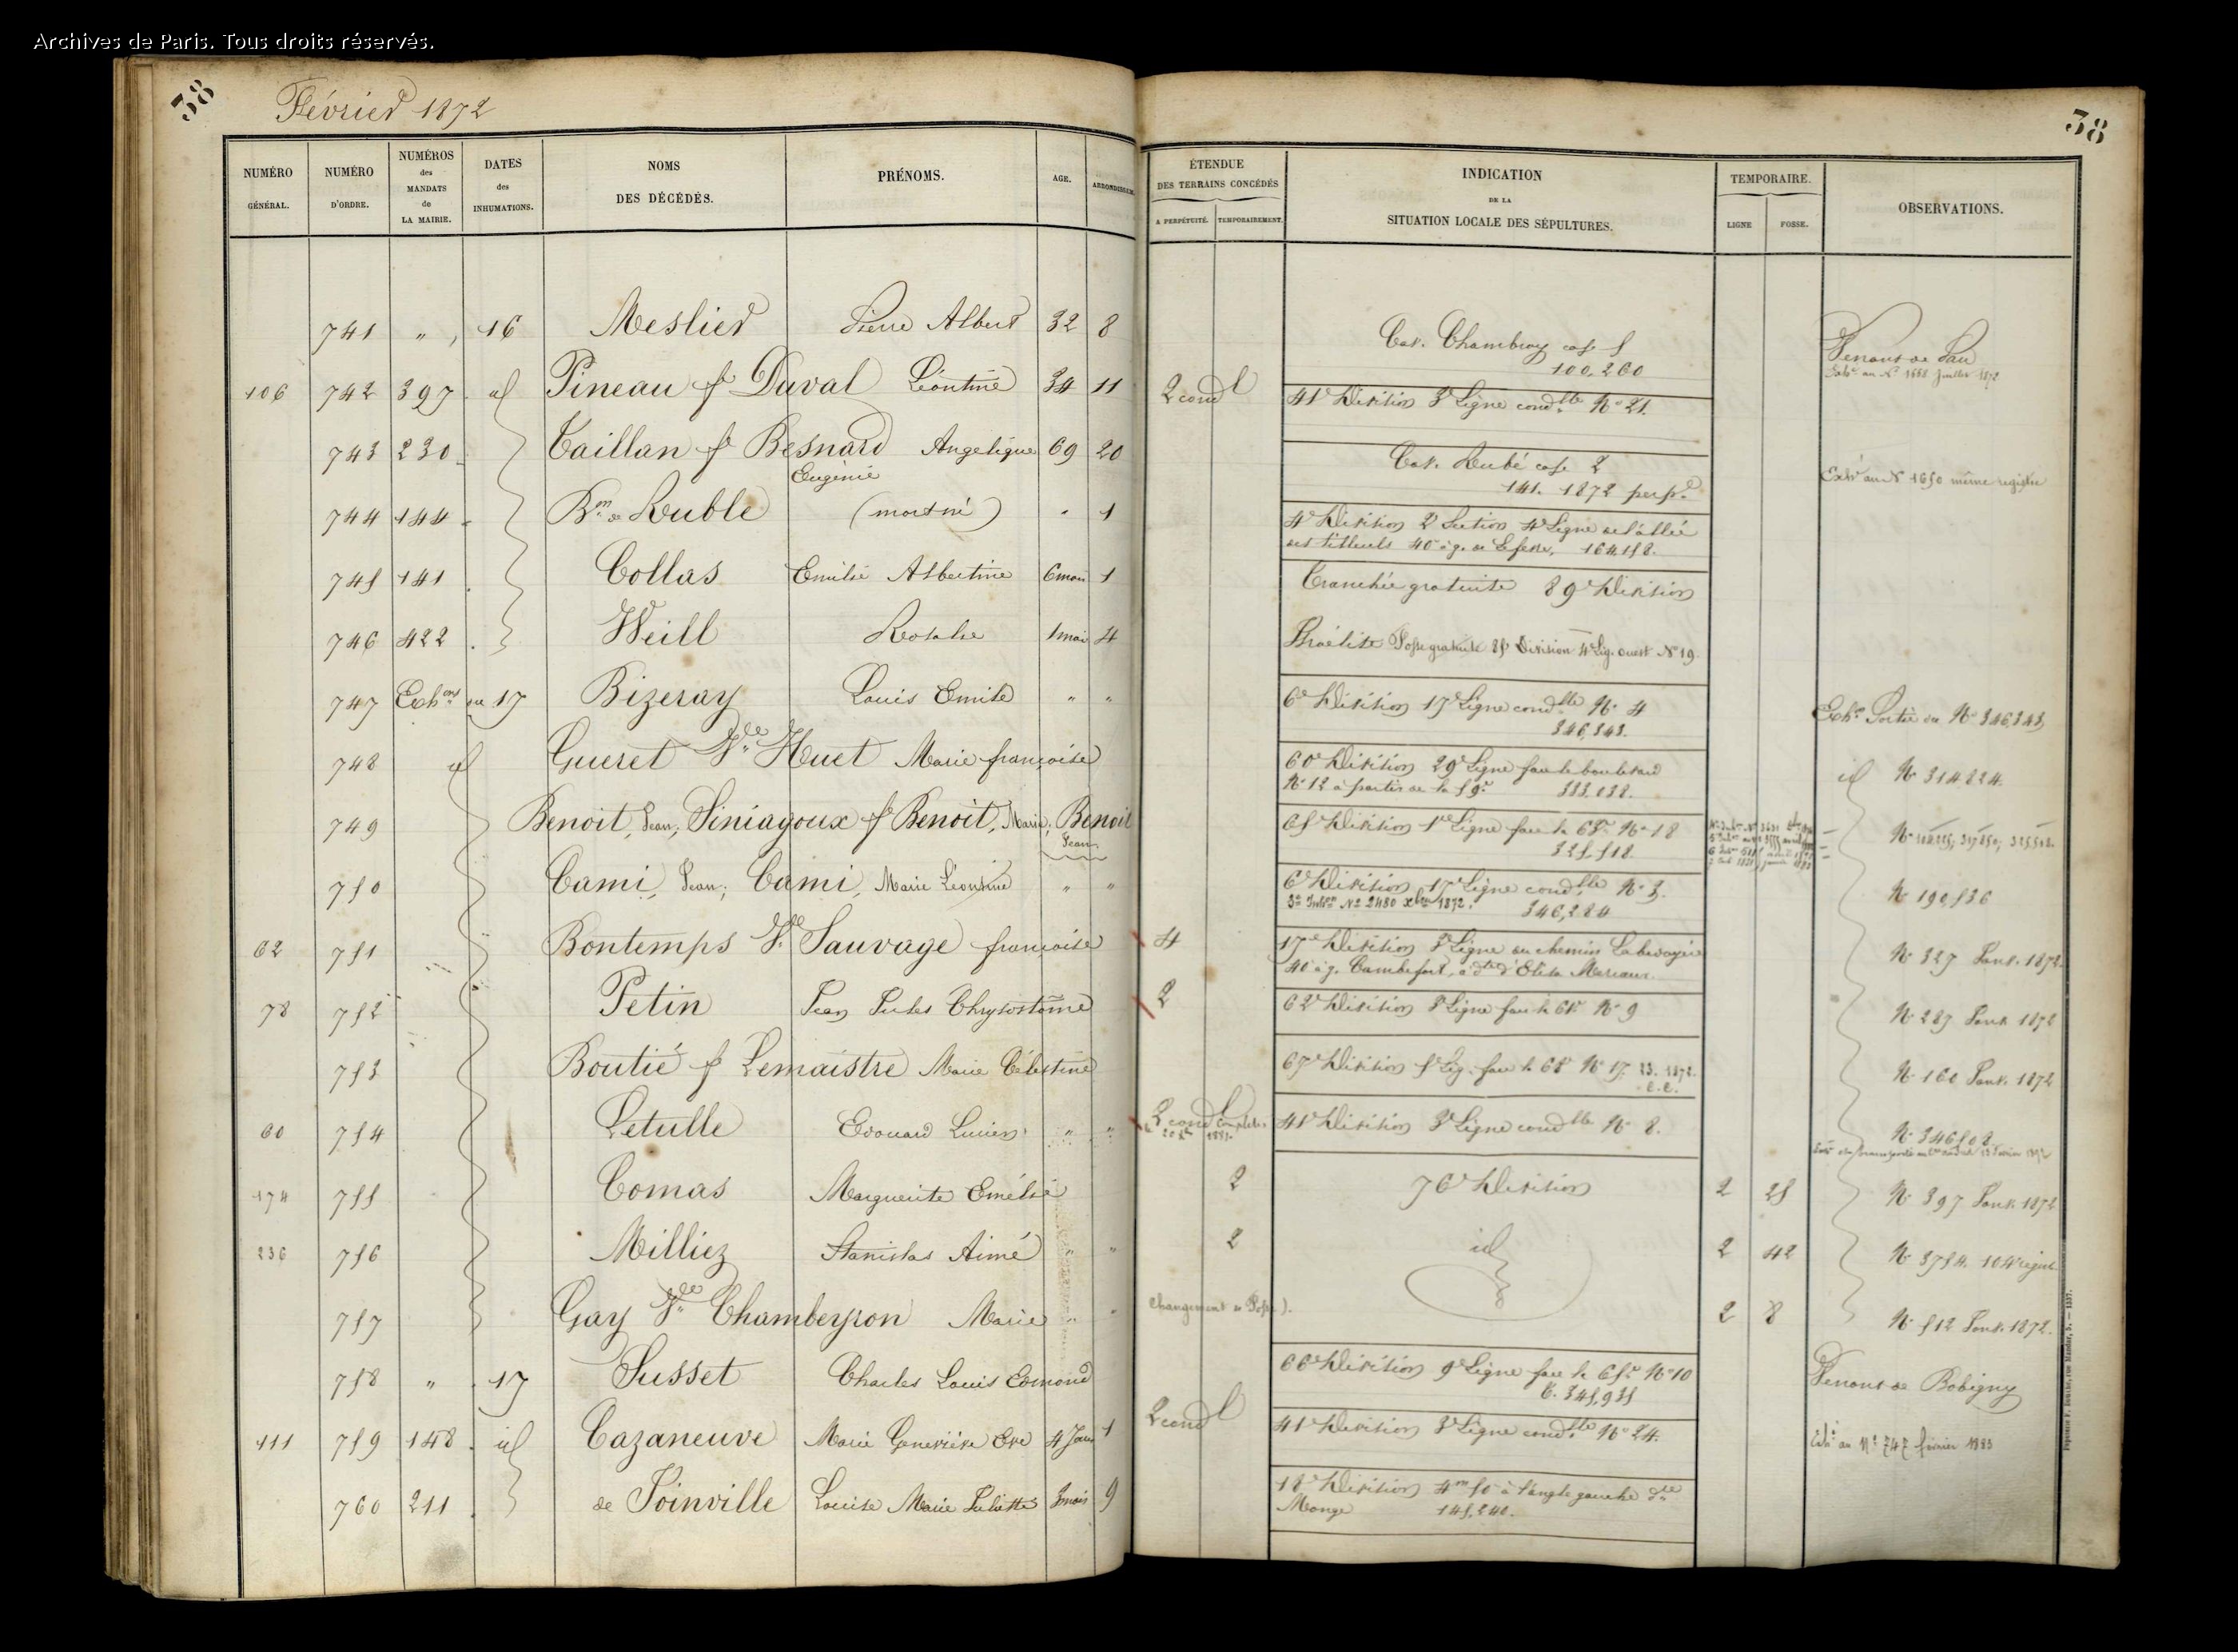 Archives de Paris. Tous droits réservés.
38
Février 1872
38
NUMÉRO GÉNÉRAL.
NUMÉRO D'ORDRE.
NUMÉROS des MANDATS de LA MAIRIE.
DATES des INHUMATIONS.
NOMS DES DÉCÉDÉS.
PRÉNOMS.
AGE.
ARRONDISSEM.
ÉTENDUE DES TERRAINS CONCÉDÉS
A PERPÉTUITÉ.
TEMPORAIREMENT.
INDICATION DE LA SITUATION LOCALE DES SÉPULTURES.
TEMPORAIRE.
LIGNE
FOSSE.
OBSERVATIONS.
741 " 16 Meslier Pierre Albert 32 8 Cav. Chambroy case 5 Venant de Pau
100,260 Exh.on au N° 1668 Juillet 1872
106 742 397 id Pineau fe Duval Léontine 34 11 2 condl 41e Division 3e Ligne cond.lle N° 21.
743 230 Taillan fe Besnard Angelique 69 20 Cav. Hubé case 2 Exh.on au N° 1650 même registre
Eugénie 141. 1872 perp.
744 144 Bon de Ruble (mort né) " 1 4e Division 2e Section 4e Ligne de l'allée
des tilleuls 40e à g. de Lefevre, 164.158.
745 141 Collas Emilie Albertine 6 mois 1 Tranchée gratuite 89e Division
746 422 Weill Rosalie 1 mois 4 Israélite Fosse gratuite 25e Division 4e Lig. ouest N° 19.
747 Exh.ons du 17 Bizeray Louis Emile " " 6e Division 17e Ligne cond.lle N° 4 Exh.on Portée au N° 346,343
346,343.
748 id Gueret Vve Huet Marie françoise 60e Division 29e Ligne face le boulevard id N° 314224.
N° 12 à partir de la 59e 333.038.
749 Benoit, Jean; Siniagoux fe Benoit, Marie; Benoit Jean 65e Division 1re Ligne face la 68e N° 18
325,518
750 Cami, Jean; Cami, Marie Léontine " " 6e Division 17e Ligne cond.lle N° 3. N° 190,536
3e Inh.on N° 2480 Xbre 1872. 346,284
62 751 Bontemps Vve Sauvage françoise 4 17e Division 3e Ligne du chemin Labedoyère N° 327 Janv. 1872.
40e à g. Cambefort, à dte d'Elisa Mareaux.
78 752 Petin Jean Jules Chrysostôme 2 62e Division 3e Ligne face la 61e N° 9 N° 287 Janv. 1872
753 Boutié fe Lemaistre Marie Célestine 67e Division 5e Lig. face la 68e N° 17. 23. 1872. N° 160 Janv. 1872
C.C.
60 754 Letulle Edouard Lucien " " 2 condl 41e Division 3e Ligne cond.lle N° 8. N° 346508
174 755 Comas Marguerite Emélie 2 76e Division 2 25 N° 397 Janv. 1872
236 756 Milliez Stanislas Aimé " " 2 id 2 42 N° 3754. 104e regist.
757 Gay Vve Chambeyron Marie " " Changement de Fosse). 2 8 N° 512 Janv. 1872.
758 " 17 Susset Charles Louis Edmond 66e Division 9e Ligne face la 65e N° 10 Venant de Bobigny
C. 345,935
111 759 148 id Cazaneuve Marie Geneviève Eve 4 Jours 1 2 condl 41e Division 3e Ligne cond.lle N° 24. Exh.on au N° 747 février 1893
760 211 de Joinville Louise Marie Juliette 3 mois 9 18e Division 4m 50 à l'angle gauche dte
Monge 145,240.